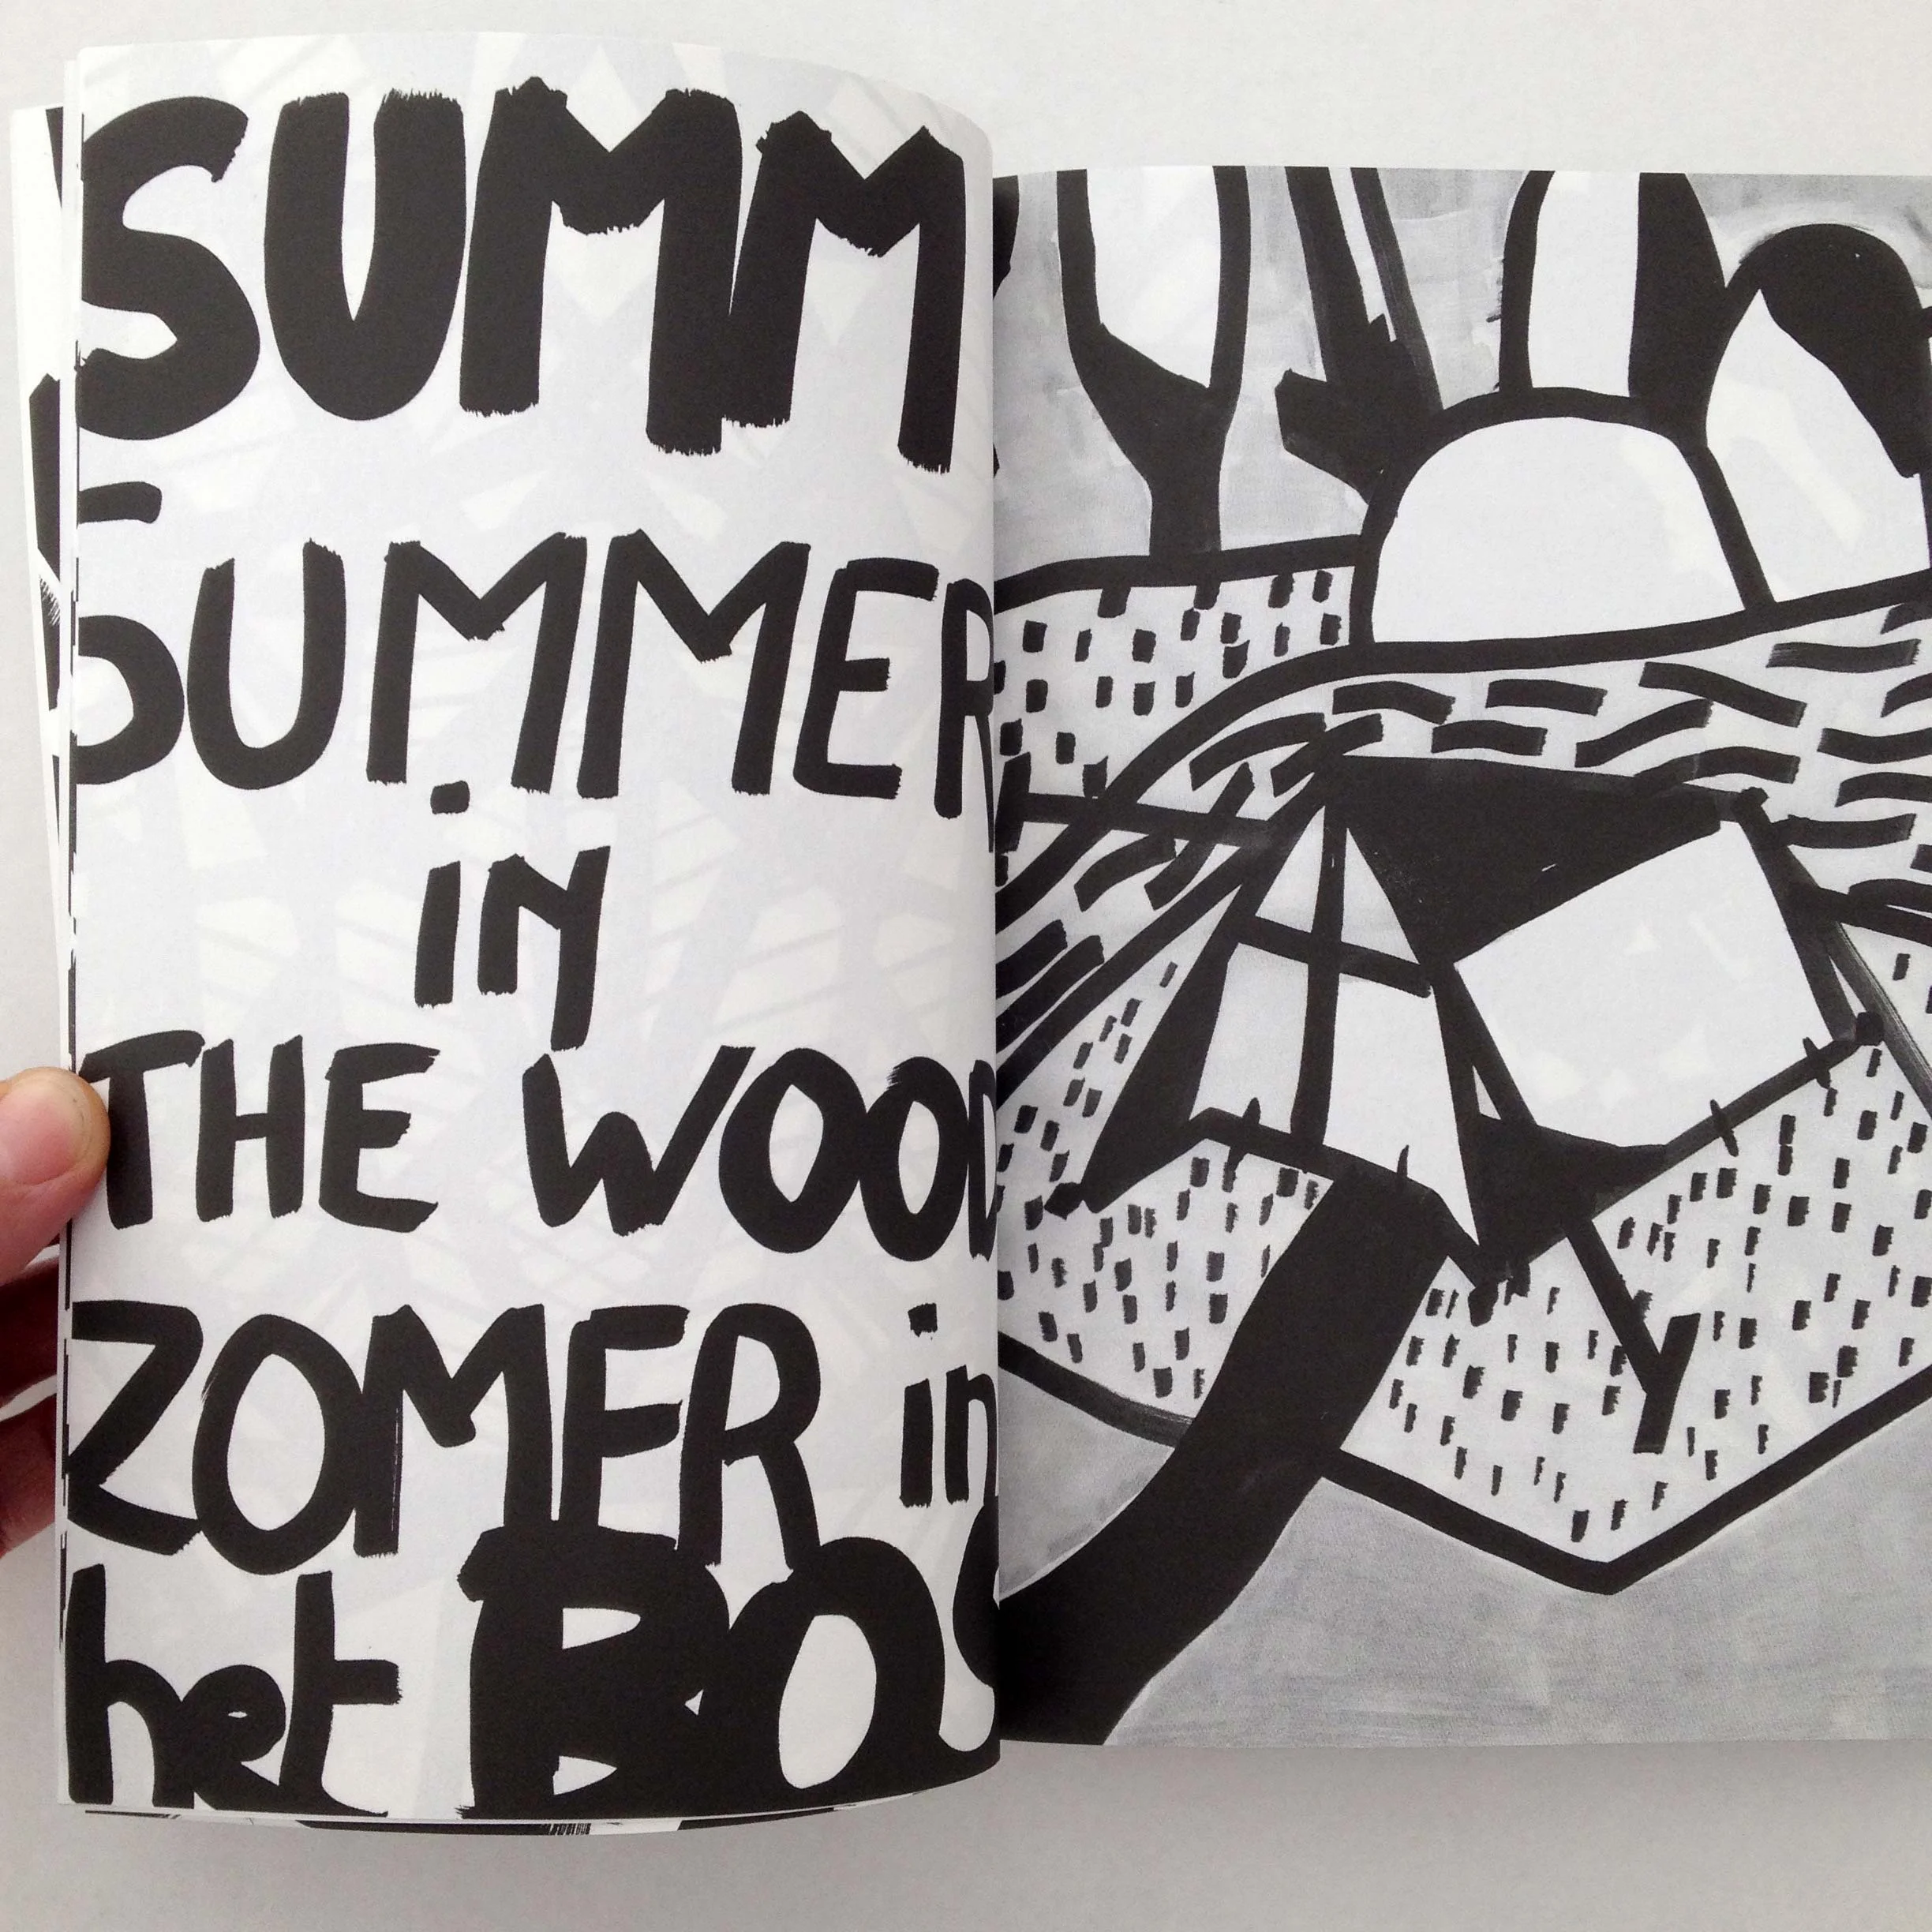 SUMM
SUMMER
in
THE WOOD
ZOMER in
het BOS